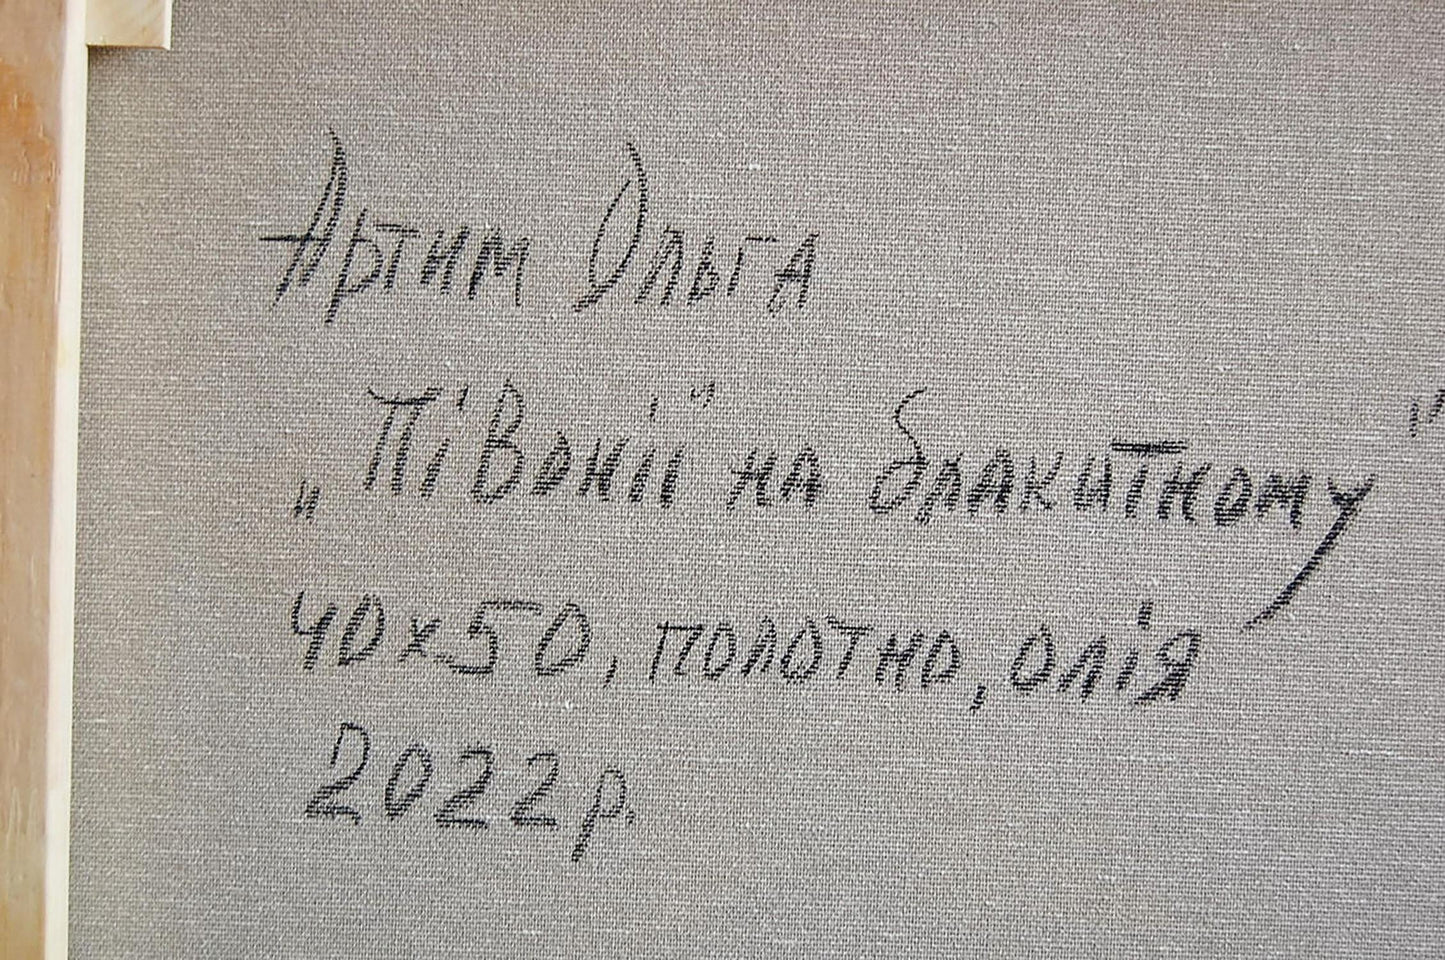 Артим Ольга
„Півонії" на блакитному"
40х50, полотно, олія
2022р.